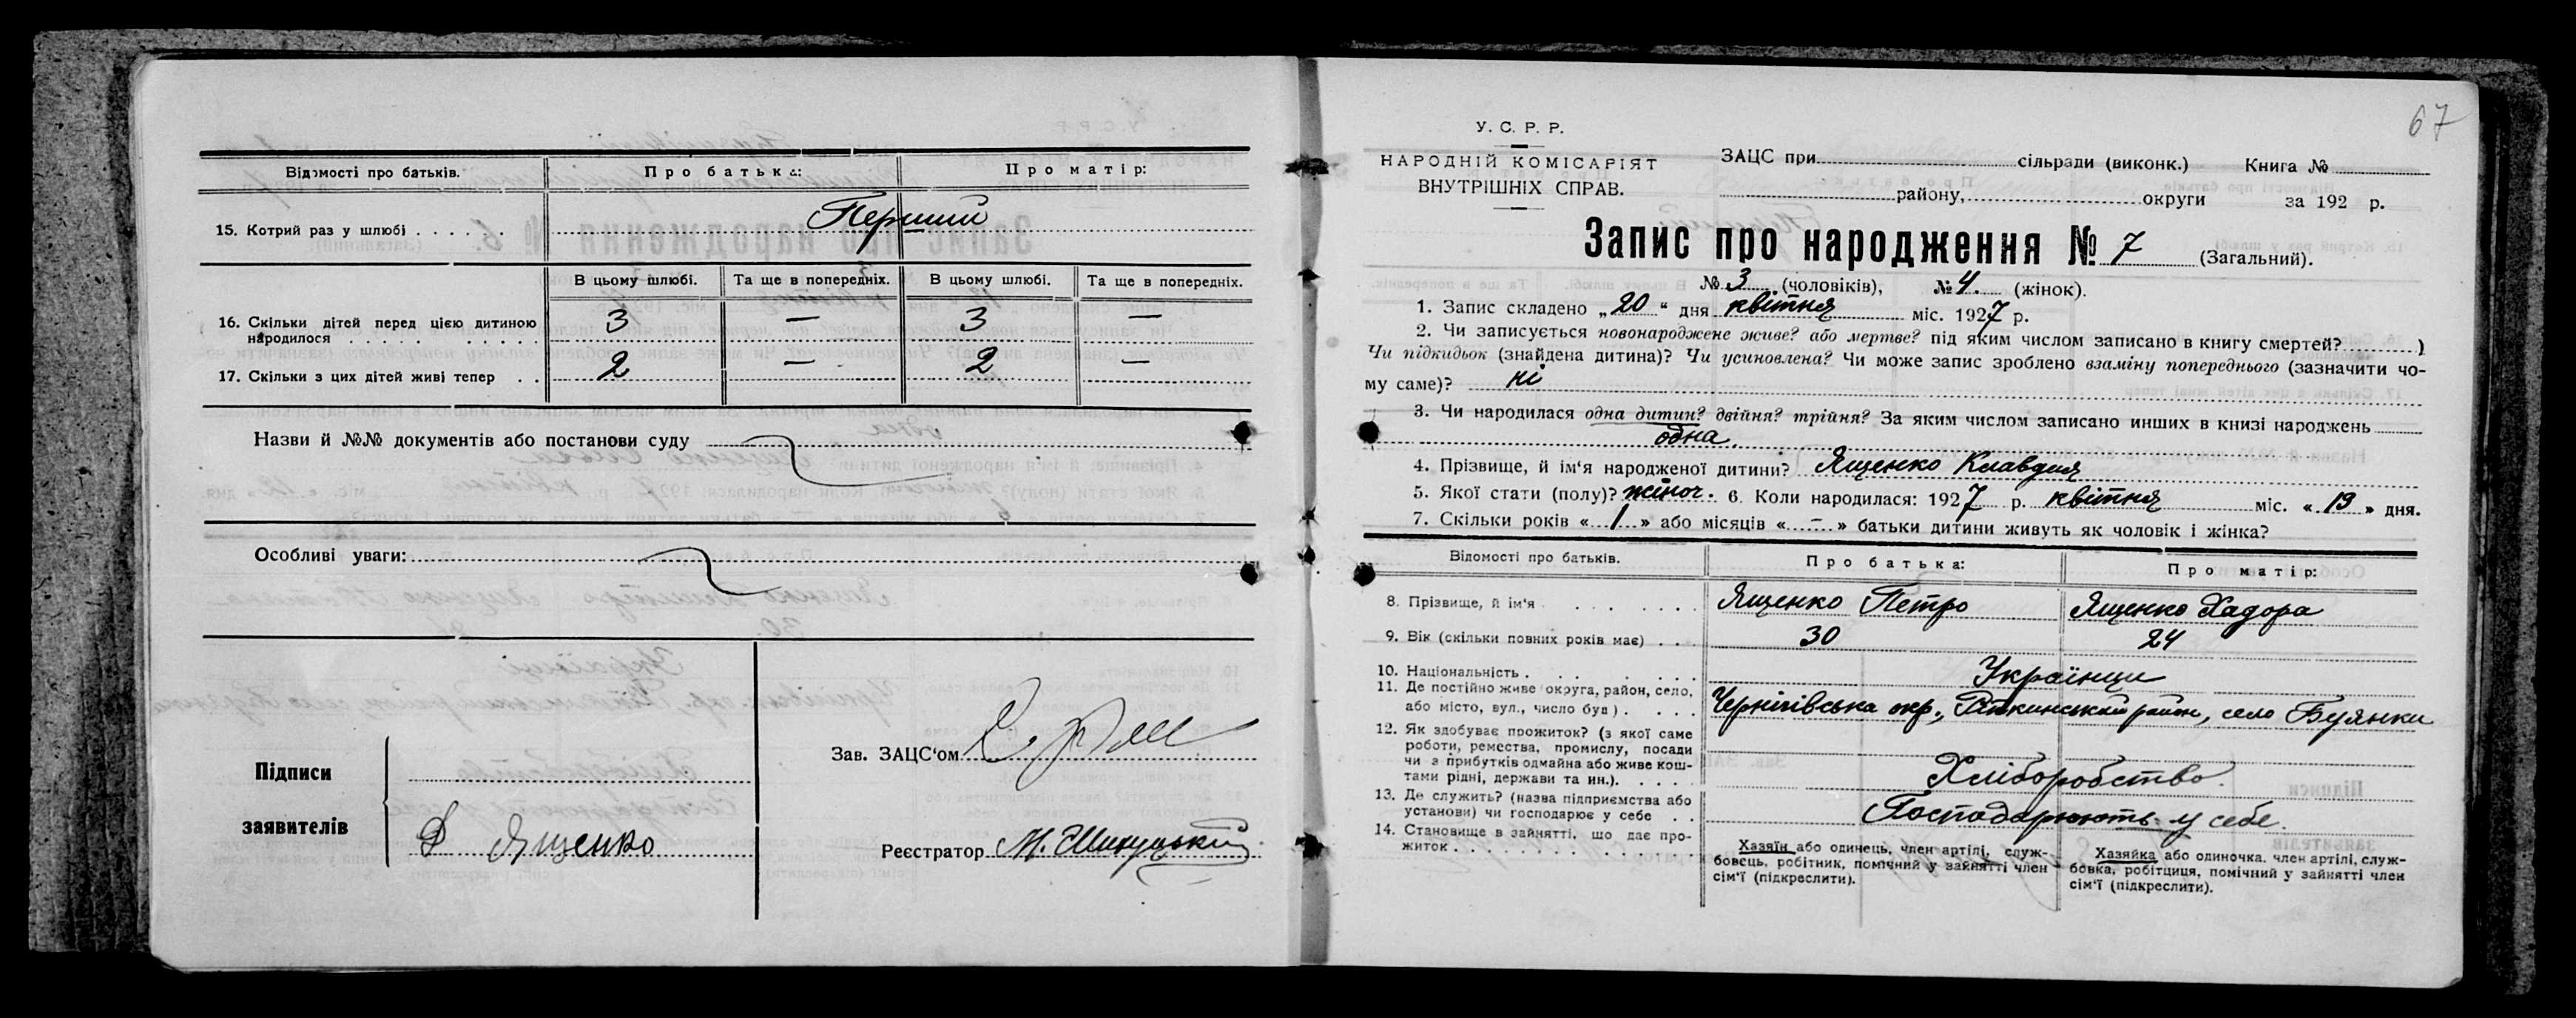 Відомості про батьків. Про батька: Про матір:
15. Котрий раз у шлюбі Перший
В цьому шлюбі. Та ще в попередніх. В цьому шлюбі. Та ще в попередніх.
16. Скільки дітей перед цією дитиною
народилося 3 — 3 —
17. Скільки з цих дітей живі тепер 2 — 2 —
Назви й №№ документів або постанови суду
Особливі уваги:
Підписи
заявителів
Ященко
Зав. ЗАЦС‘ом
Реєстратор М.
67
У. С. Р. Р.
НАРОДНІЙ КОМІСАРІЯТ
ВНУТРІШНІХ СПРАВ.
ЗАЦС при сільради (виконк.) Книга №
району, округи за 192 р.
Запис про народження № 7 (Загальний).
№ 3 (чоловіків), № 4. (жінок).
1. Запис складено „20“ дня квітня міс. 1927 р.
2. Чи записується новонароджене живе? або мертве? під яким числом записано в книгу смертей? )
Чи підкидьок (знайдена дитина)? Чи усиновлена? Чи може запис зроблено взаміну попереднього (зазначити чо-
му саме)? ні
3. Чи народилася одна дитин? двійня? трійня? За яким числом записано инших в книзі народжень
одна.
4. Прізвище, й ім‘я народженої дитини? Ященко Клавдия
5. Якої стати (полу)? жіноч. 6. Коли народилася: 1927 р. квітня міс. «19» дня.
7. Скільки років «1» або місяців «–» батьки дитини живуть як чоловік і жінка?
Відомості про батьків. Про батька: Про матір:
8. Прізвище, й ім‘я Ященко Петро Ященко Хадора
9. Вік (скільки повних років має) 30 24
10. Національність Українци
11. Де постійно живе округа, район, село,
або місто, вул., число буд.) Чернігівська окр., район, село Буянки
12. Як здобуває прожиток? (з якої саме
роботи, ремества, промислу, посади
чи з прибутків одмайна або живе кош-
тами рідні, держави та ин.). Хліборобство.
13. Де служить? (назва підприємства або
установи) чи господарює у себе Господарюють у себе.
14. Становище в зайнятті, що дає про-
житок
Хазяїн або одинець, член артілі, служ-
бовець, робітник, помічний у зайнятті член
сім‘ї (підкреслити).
Хазяйка або одиночка, член артілі, служ-
бовка, робітциця, помічний у зайнятті член
сім‘ї (підкреслити).